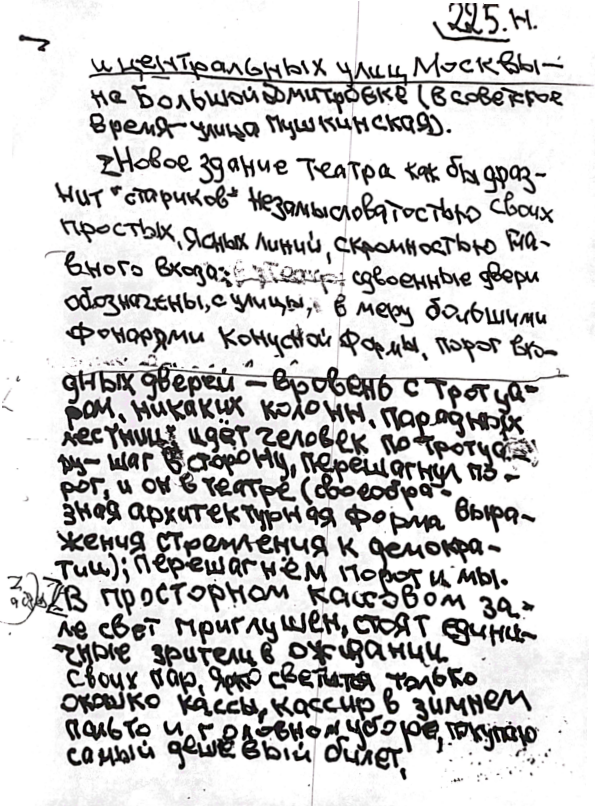 225.Н.
и центральных улиц Москвы -
на Большой Дмитровке (в советское
время - улица Пушкинская).
Новое здание театра как бы драз-
нит "стариков" незамысловатостью своих
простых, ясных линий, скромностью гла-
вного входа: сдвоенные двери
обозначены, с улицы, в меру большими
фонарями конусной формы, порог вхо-
дных дверей - вровень с тротуа-
ром, никаких колонн, парадных
лестниц: идёт человек по тротуа-
ру - шаг в сторону, перешагнул по-
рог, и он в театре (своеобра-
зная архитектурная форма выра-
жения стремления к демокра-
тии); перешагнём порог и мы.
В просторном кассовом за-
ле свет приглушен, стоят едини-
чные зрители в ожидании
своих пар, ярко светится только
окошко кассы, кассир в зимнем
пальто и головном уборе, покупаю
самый дешевый билет,